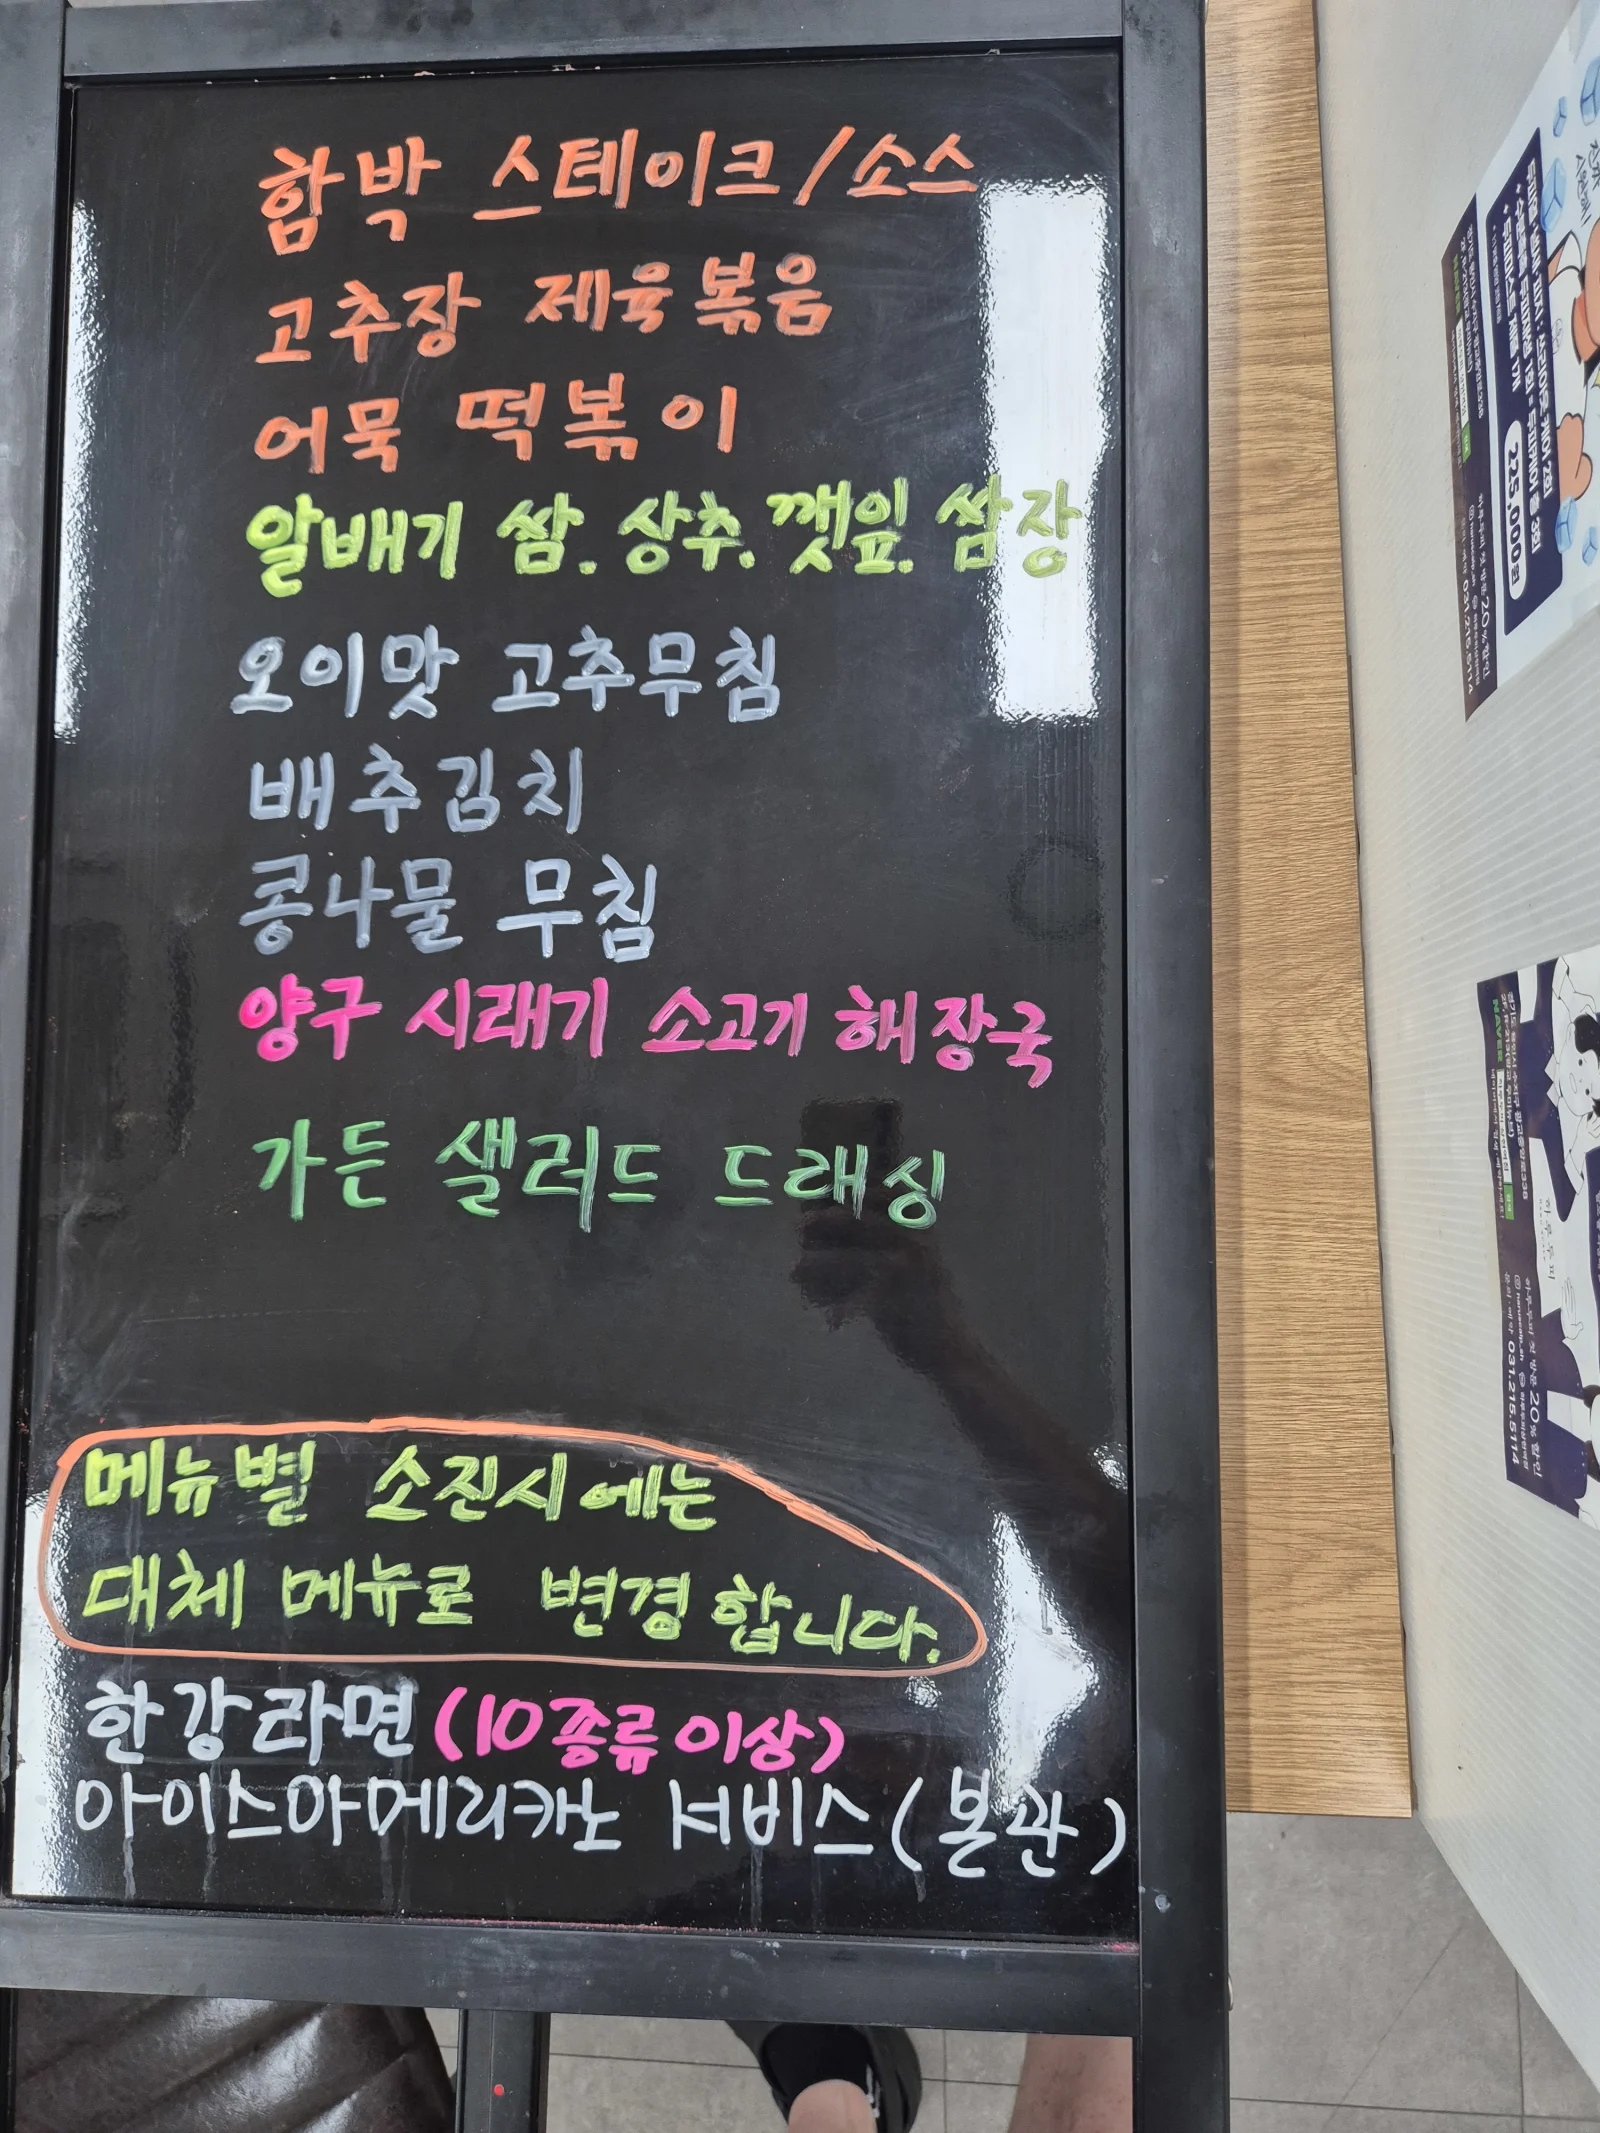 함박 스테이크/소스
고추장 제육볶음
어묵 떡볶이
알배기 쌈. 상추. 깻잎. 쌈장
오이맛 고추무침
배추김치
콩나물 무침
양구 시래기 소고기 해장국
가든 샐러드 드래싱
메뉴별 소진시에는
대체 메뉴로 변경합니다.
한강라면 (10종류이상)
아이스아메리카노 서비스(본관)
225,000원
NAVER
031.215.5114